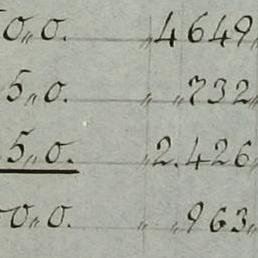 0„0. „4649„
5„0. „ „732„
5„0. „2.426„
00„0. „ „963„